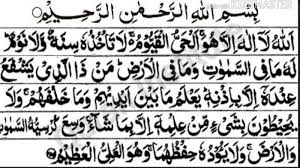 بِسْمِ اللهِ الرَّحْمٰنِ الرَّحِيْمِ
اَللهُ لَاۤ اِلٰهَ اِلَّا هُوَۚ اَلْحَىُّ الْقَيُّوْمُ ۚ لَا تَاْخُذُهٗ سِنَةٌ وَّلَا نَوْمٌ ؕ
لَهٗ مَا فِى السَّمٰوٰتِ وَمَا فِى الْاَرْضِ ؕ مَنْ ذَا الَّذِىْ يَشْفَعُ
عِنْدَهٗۤ اِلَّا بِاِذْنِهٖ ؕ يَعْلَمُ مَا بَيْنَ اَيْدِيْهِمْ وَمَا خَلْفَهُمْ ۚ وَلَا
يُحِيْطُوْنَ بِشَىْءٍ مِّنْ عِلْمِهٖۤ اِلَّا بِمَا شَآءَ ۚ وَسِعَ كُرْسِيُّهُ السَّمٰوٰتِ
وَالْاَرْضَ ۚ وَلَا يَئُوْدُهٗ حِفْظُهُمَا ۚ وَهُوَ الْعَلِىُّ الْعَظِيْمُ